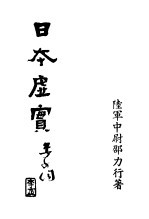 陸軍中尉邵力行著
日本虛實